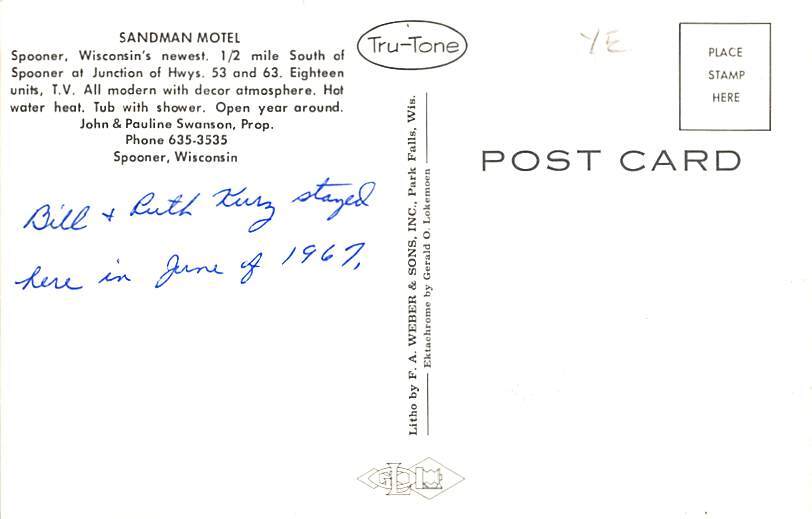 SANDMAN MOTEL
Spooner, Wisconsin's newest. 1/2 mile South of
Spooner at Junction of Hwys. 53 and 63. Eighteen
units, T.V. All modern with decor atmosphere. Hot
water heat. Tub with shower. Open year around.
John & Pauline Swanson, Prop.
Phone 635-3535
Spooner, Wisconsin
Bill & Ruth Kurz stayed
here in June of 1967.
Tru-Tone
Litho by F. A. WEBER & SONS, INC., Park Falls, Wis.
Ektachrome by Gerald O. Lokemoen
YE
PLACE
STAMP
HERE
POST CARD